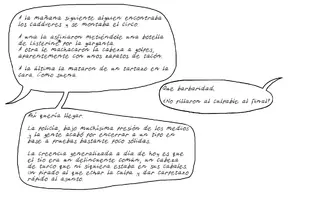 A la mañana siguiente alguien encontraba
los cadáveres y se montaba el circo.
A una la asfixiaron metiéndole una botella
de Listerine por la garganta.
A otra le machacaron la cabeza a golpes,
aparentemente con unos zapatos de tacón.
A la última la mataron de un tartazo en la
cara. Como suena.
Qué barbaridad.
¿No pillaron al culpable al final?
Ahí quería llegar.
La policía, bajo muchísima presión de los medios
y la gente acabó por encerrar a un tipo en
base a pruebas bastante poco sólidas.
La creencia generalizada a día de hoy es que
el tío era un delincuente común, un cabeza
de turco que ni siquiera estaba en sus cabales.
Un pirado al que echar la culpa y dar carpetazo
rápido al asunto.